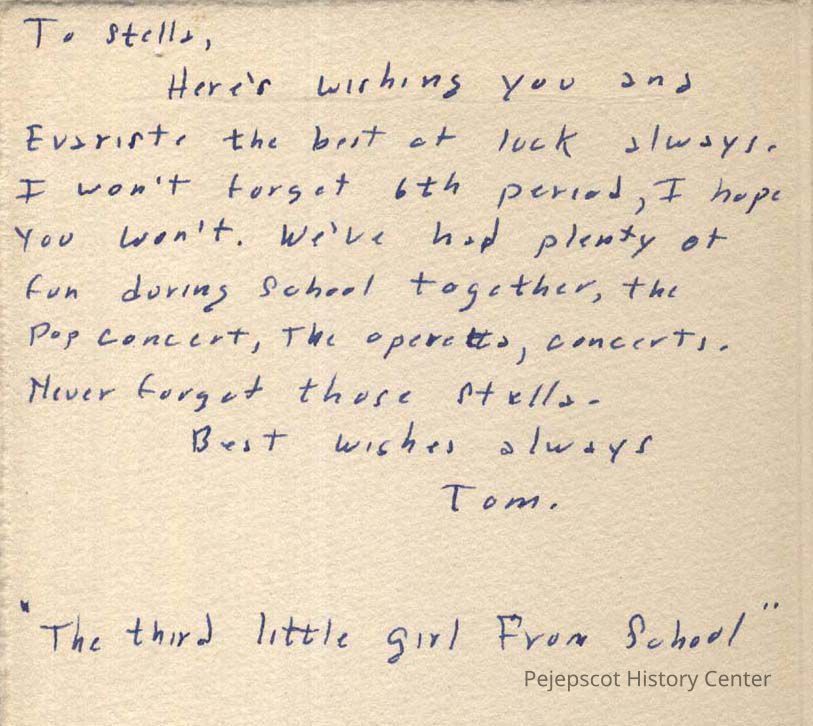 To Stella,
Here's wishing you and
Evariste the best of luck always.
I won't forget 6th period, I hope
you won't. We've had plenty of
fun during School together, the
Pop concert, The operetta, concerts.
Never forget those Stella.
Best wishes always
Tom.
"The third little girl From School"
Pejepscot History Center